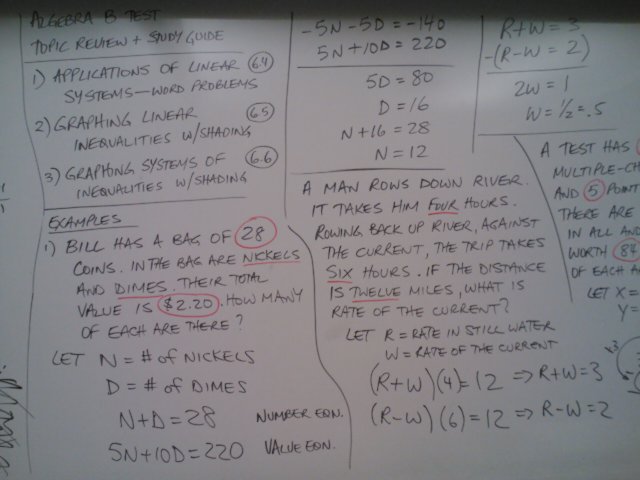 ALGEBRA B TEST
TOPIC REVIEW + STUDY GUIDE
1) APPLICATIONS OF LINEAR 6.4
SYSTEMS—WORD PROBLEMS
2) GRAPHING LINEAR 6.5
INEQUALITIES W/SHADING
3) GRAPHING SYSTEMS OF 6.6
INEQUALITIES W/SHADING
EXAMPLES
1) BILL HAS A BAG OF 28
COINS. IN THE BAG ARE NICKELS
AND DIMES. THEIR TOTAL
VALUE IS $2.20. HOW MANY
OF EACH ARE THERE?
LET N = # OF NICKELS
D = # OF DIMES
N+D=28 NUMBER EQN.
5N+10D=220 VALUE EQN.
-5N-5D=-140
5N+10D=220
5D=80
D=16
N+16=28
N=12
A MAN ROWS DOWN RIVER.
IT TAKES HIM FOUR HOURS.
ROWING BACK UP RIVER, AGAINST
THE CURRENT, THE TRIP TAKES
SIX HOURS. IF THE DISTANCE
IS TWELVE MILES, WHAT IS
RATE OF THE CURRENT?
LET R = RATE IN STILL WATER
W = RATE OF THE CURRENT
(R+W)(4)=12 ⇒ R+W=3
(R-W)(6)=12 ⇒ R-W=2
R+W=3
-(R-W=2)
2W=1
W=1/2=.5
A TEST HAS
MULTIPLE-CH
AND 5 POINT
THERE ARE
IN ALL AND
WORTH 87
OF EACH A
LET X=
Y=